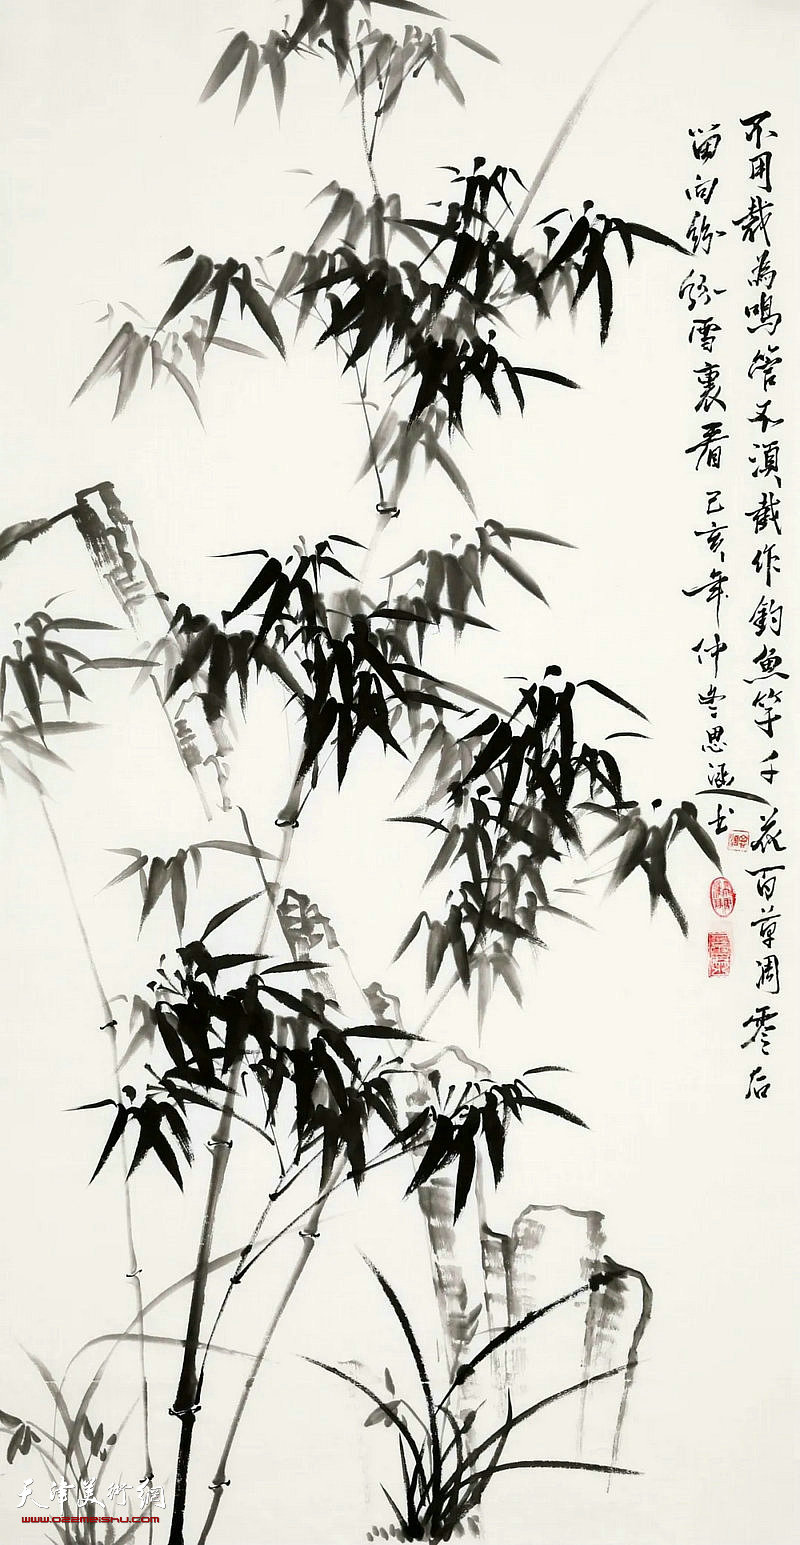 不用裁為鳴管不須截作釣魚竿千花百草凋零后
留向紛紛雪裏看己亥年仲冬思涵书
天津美術網
www.022meishu.com